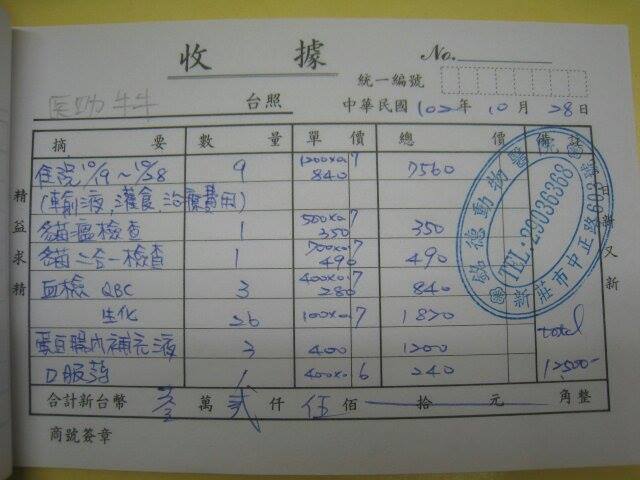 收據
No.
統一編號
台照
中華民國 102 年 10 月 28 日
摘要 數量 單價 總價 備註
住院 10/9~10/28 9 1200x0.7 840 7560
輸液,灌食,治療費用)
貓瘟檢查 1 500x0.7 350 350
貓二合一檢查 1 700x0.7 490 490
血檢 QBC 3 400x0.7 280 840
生化 26 100x0.7 1820
腸內補充液 3 400 1200
口服藥 1 400x0.6 240
total
12500-
合計新台幣 萬 貳 仟 伍 佰 拾 元 角整
商號簽章
精益求精
日新又新
銘德動物醫
TEL:29036368
新莊市中正路803號